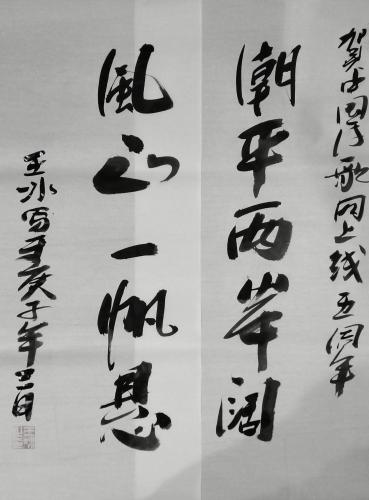 贺中国诗歌网上线五周年
潮平两岸阔
風正一帆悬
冰写于庚子年